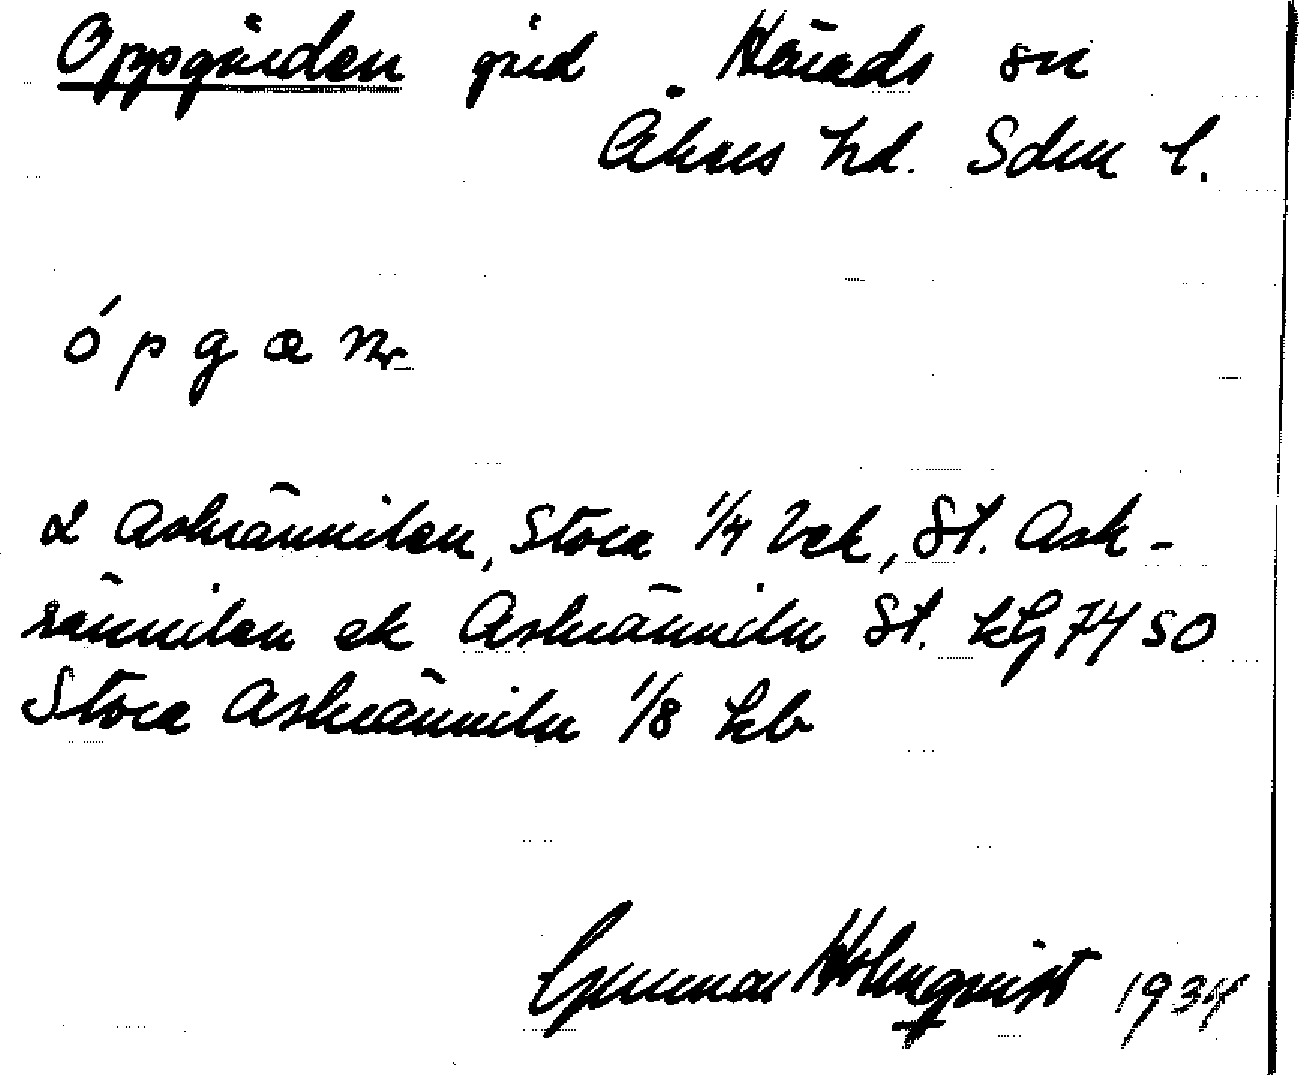 Oppgården gård Härads sn
Åkers hd. Sdm l.
ópgæn
L Askrännilen, Stora 1/4 Vek, St. Ask-
rännilen ek Askränniln St. kG 74 50
Stora Askränniln 1/8 hb
Gunnar Holmqvist 1934